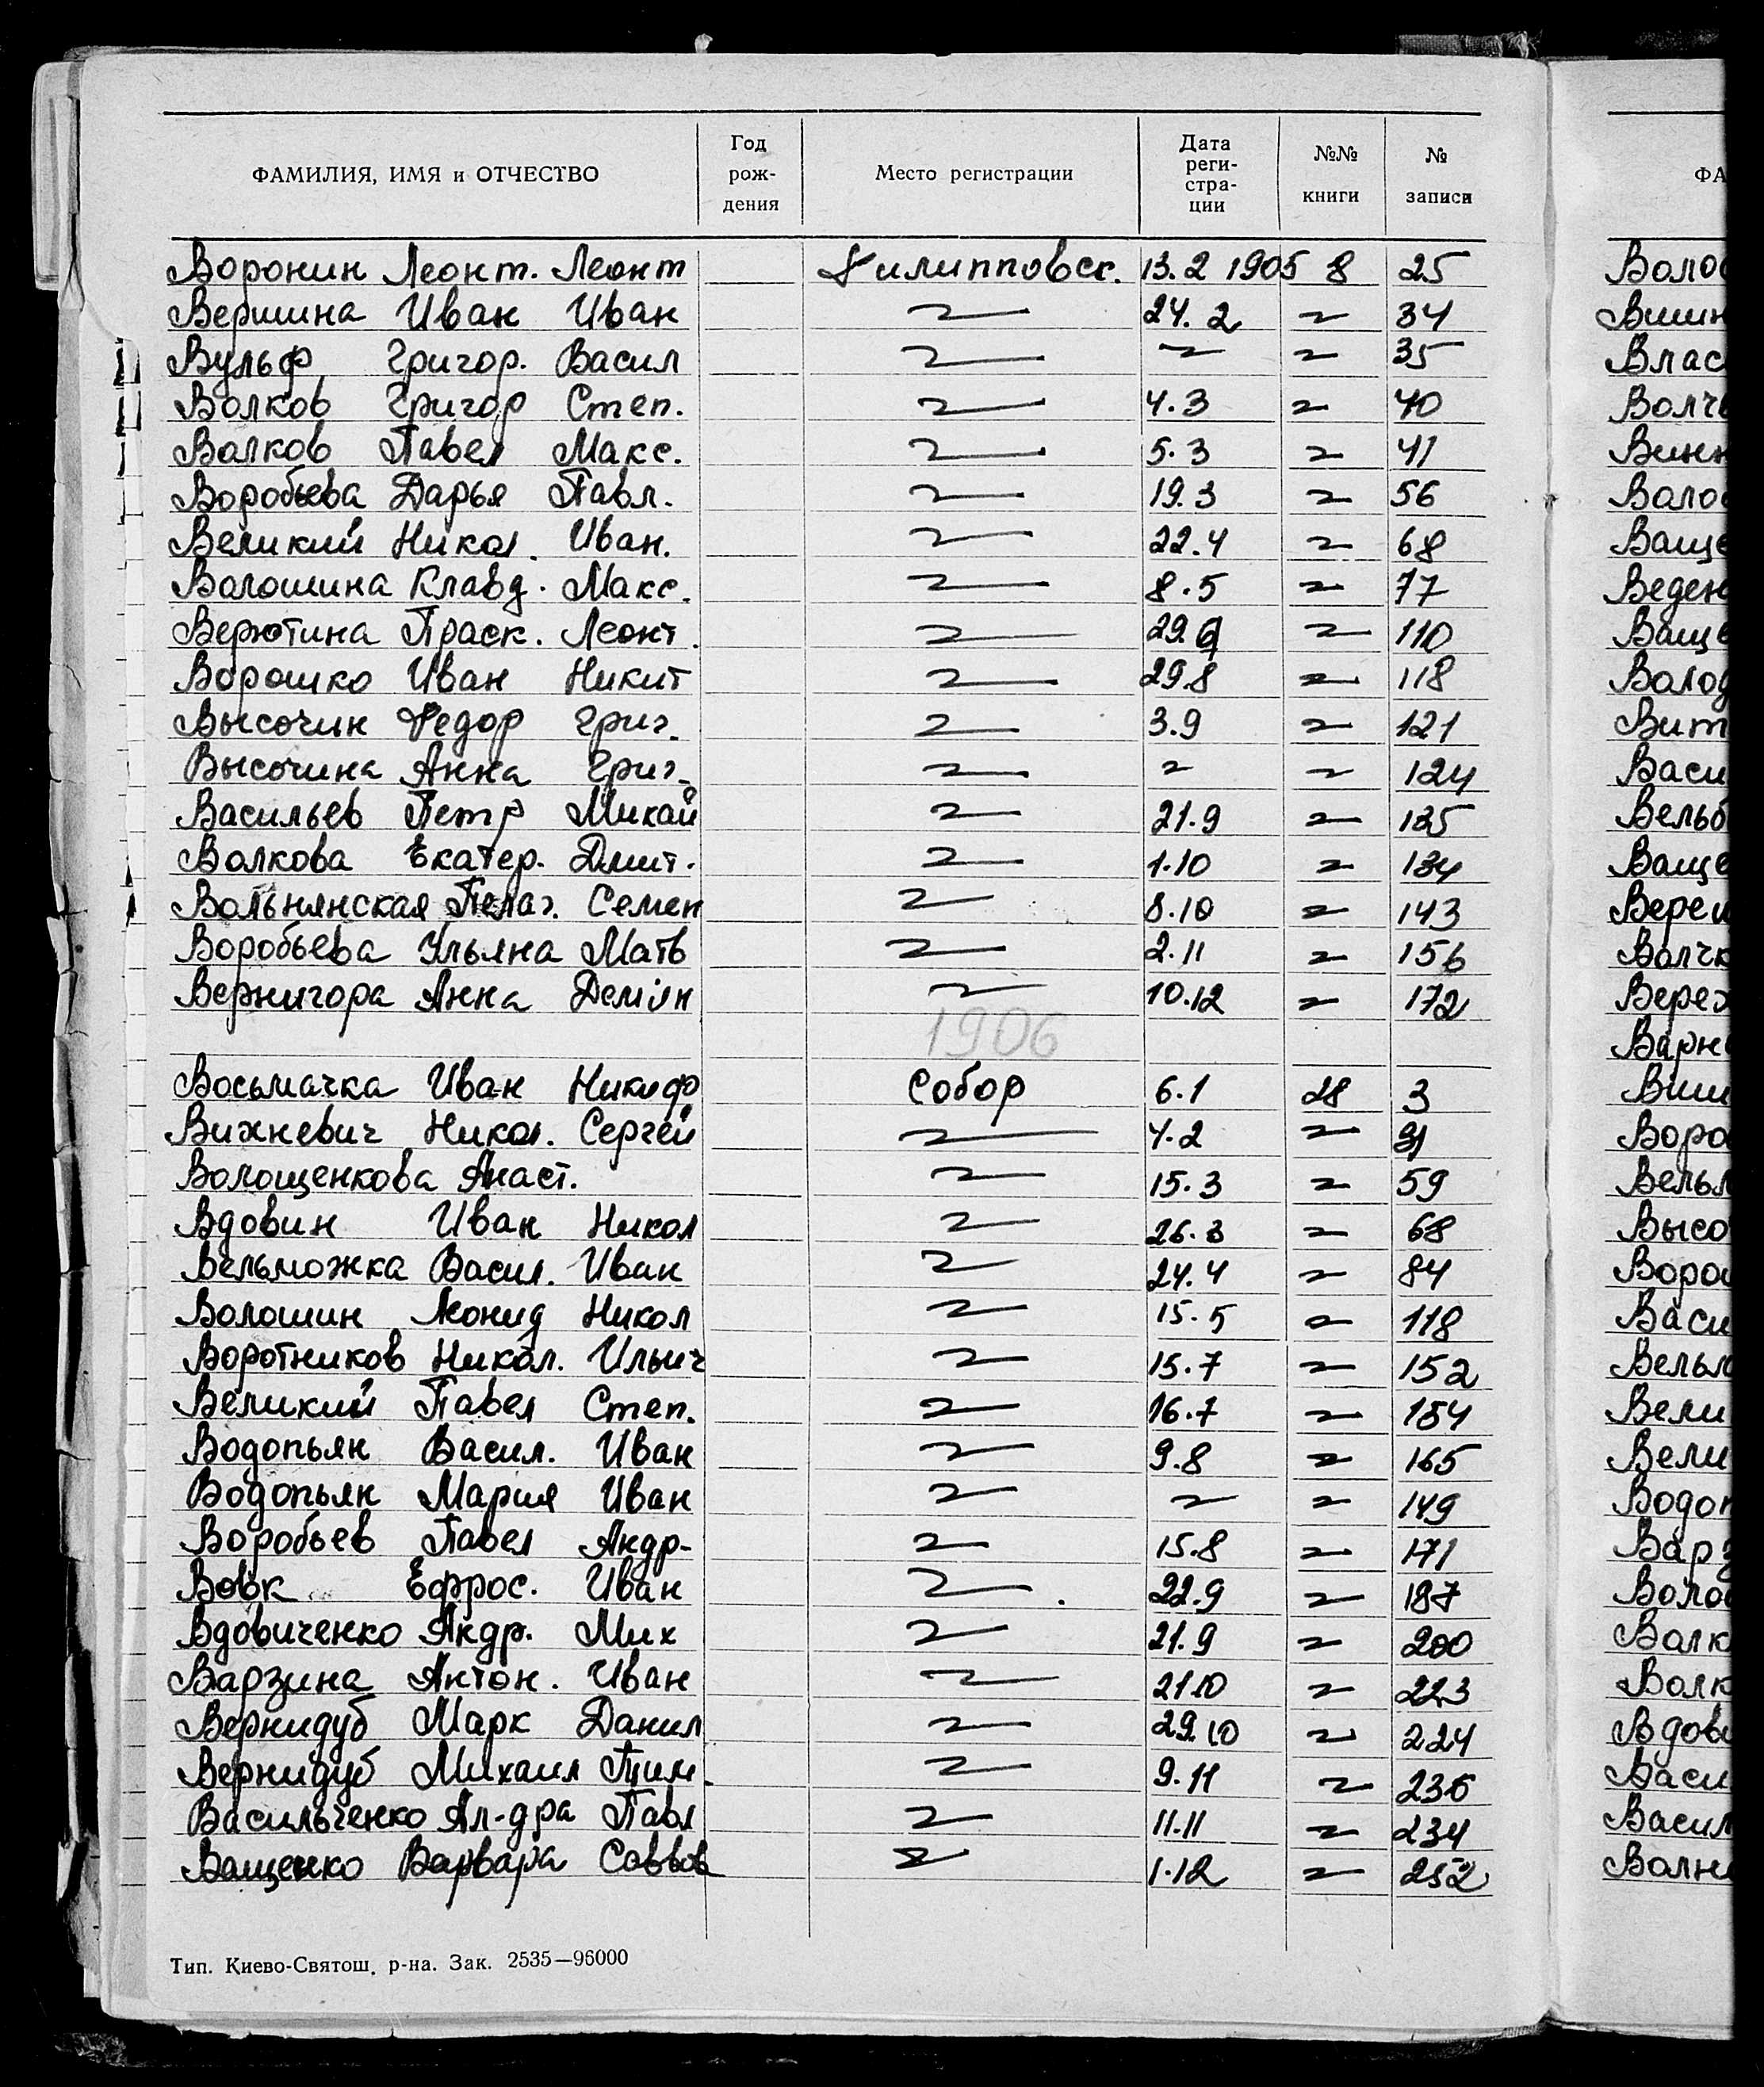 ФАМИЛИЯ, ИМЯ и ОТЧЕСТВО Год рождения Место регистрации Дата регистрации №№ книги № записи
Воронин Леонт. Леонт Филипповск. 13.2 1905 8 25
Вершина Иван Иван 24.2 34
Вульф Григор. Васил 35
Волков Григор Степ. 4.3 40
Волков Павел Макс. 5.3 41
Воробьева Дарья Павл. 19.3 56
Великий Никол. Иван. 22.4 68
Волошина Клавд. Макс. 8.5 77
Верютина Праск. Леонт. 29. 110
Ворошко Иван Никит 29.8 118
Высочин Федор Григ. 3.9 121
Высочина Анна Григ. 124
Васильев Петр Михай 21.9 135
Волкова Екатер. Дмит. 1.10 134
Вольнянская Пелаг. Семен 8.10 143
Воробьева Ульяна Матв 2.11 156
Вернигора Анна Демян 10.12 172
1906
Восьмачка Иван Никиф Собор 6.1 28 3
Вихневич Никол. Сергей 4.2
Волощенкова Анаст. 15.3 59
Вдовин Иван Никол 26.3 68
Вельможка Васил. Иван 24.4 84
Волошин Леонид Никол 15.5 118
Воротников Никол. Ильич 15.7 152
Великий Павел Степ. 16.7 154
Водопьян Васил. Иван 9.8 165
Водопьян Мария Иван 149
Воробьев Павел Андр- 15.8 171
Вовк Ефрос. Иван 22.9 187
Вдовиченко Андр. Мих 21.9 200
Варзина Антон. Иван 21.10 223
Вернидуб Марк Данил 29.10 224
Вернидуб Михаил Тим. 9.11 236
Васильченко Ал-дра Павл 11.11 234
Ващенко Варвара Саввов 1.12 252
Тип. Киево-Святош. р-на. Зак. 2535—96000